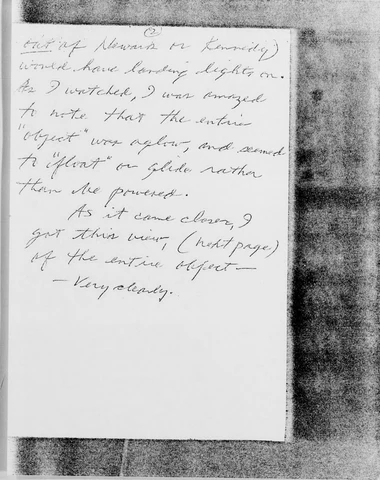 (2)
out of Newark or Kennedy)
would have landing lights on.
As I watched, I was amazed
to note that the entire
"object" was aglow, and seemed
to "float" or glide rather
than be powered.
As it came closer, I
got this view, (next page)
of the entire object —
— Very clearly.